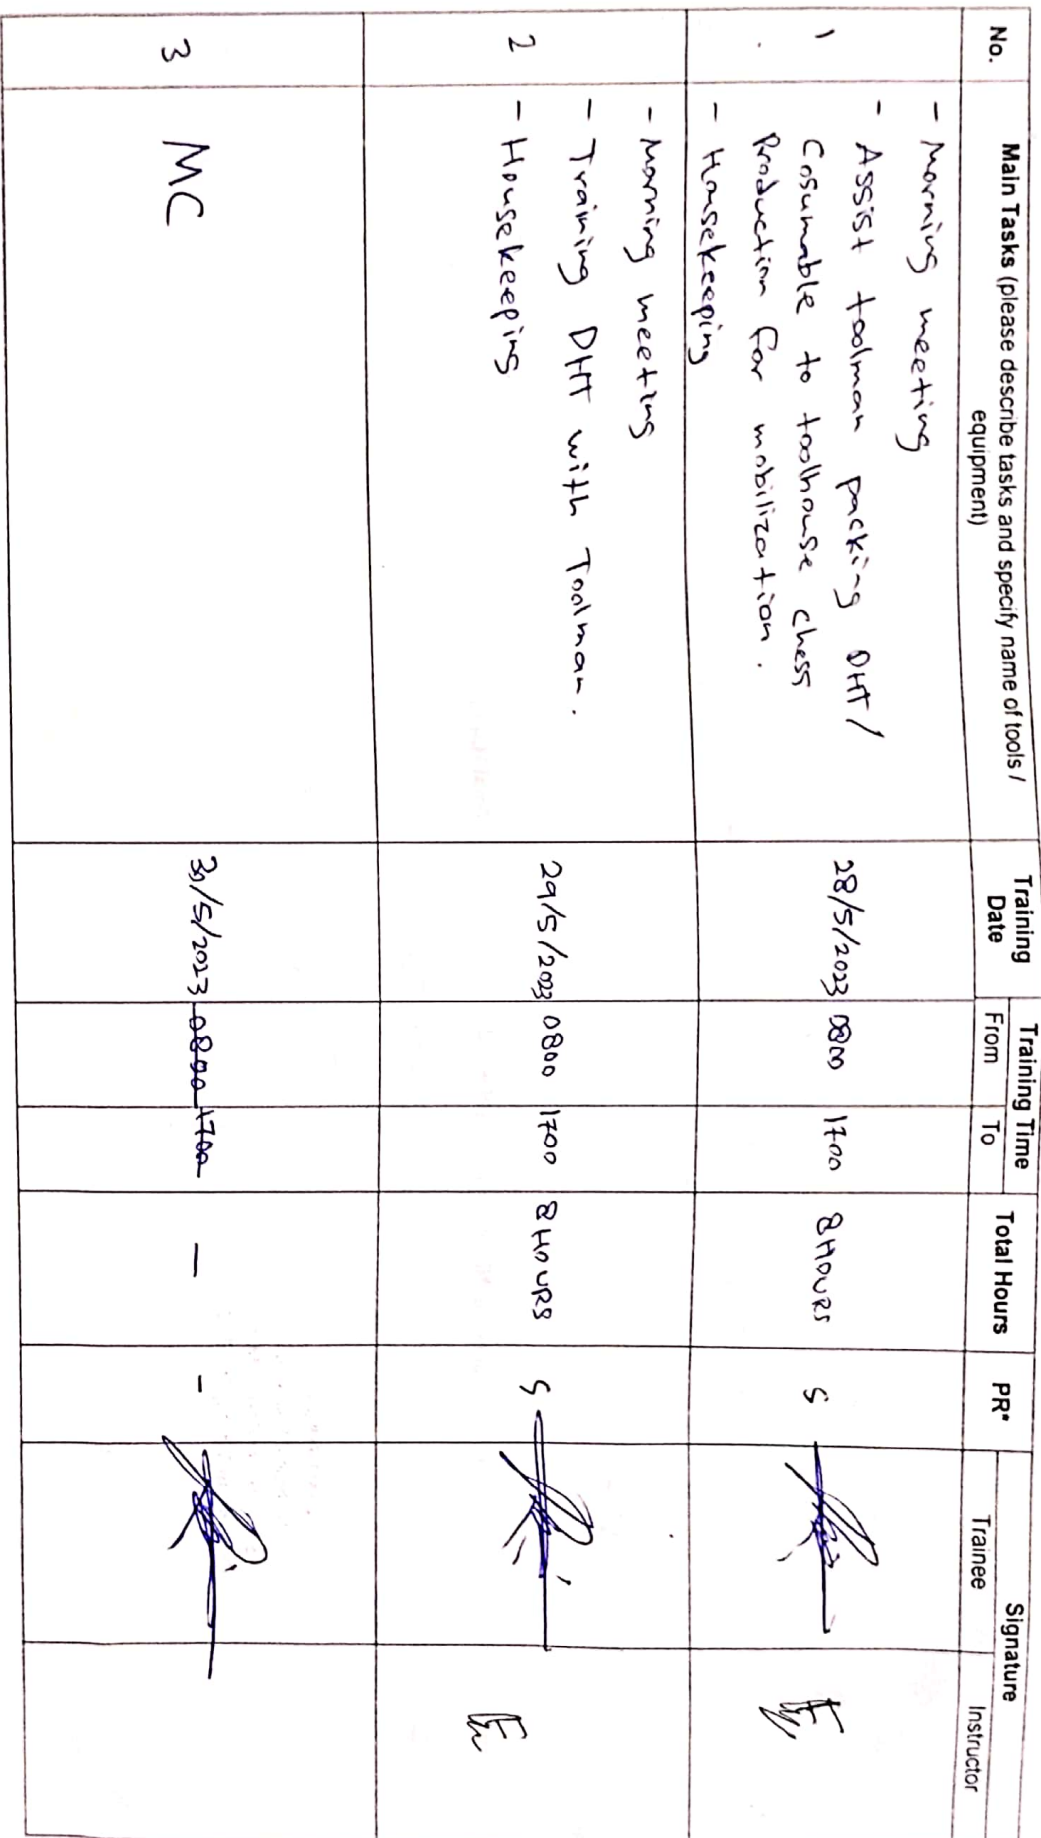 No.
Main Tasks (please describe tasks and specify name of tools /
equipment)
Training
Date
Training Time
From
To
Total Hours
PR*
Signature
Trainee
Instructor
1
- Morning meeting
- Assist toolman packing DHT/
Cosumable to toolhouse chess
Production for mobilization.
- Housekeeping
28/5/2023
0800
1700
8 HOURS
S
2
- Morning meeting
- Training DHT with Toolman.
- Housekeeping
29/5/2023
0800
1700
8 HOURS
S
3
MC
30/5/2023
0800
1700
-
-